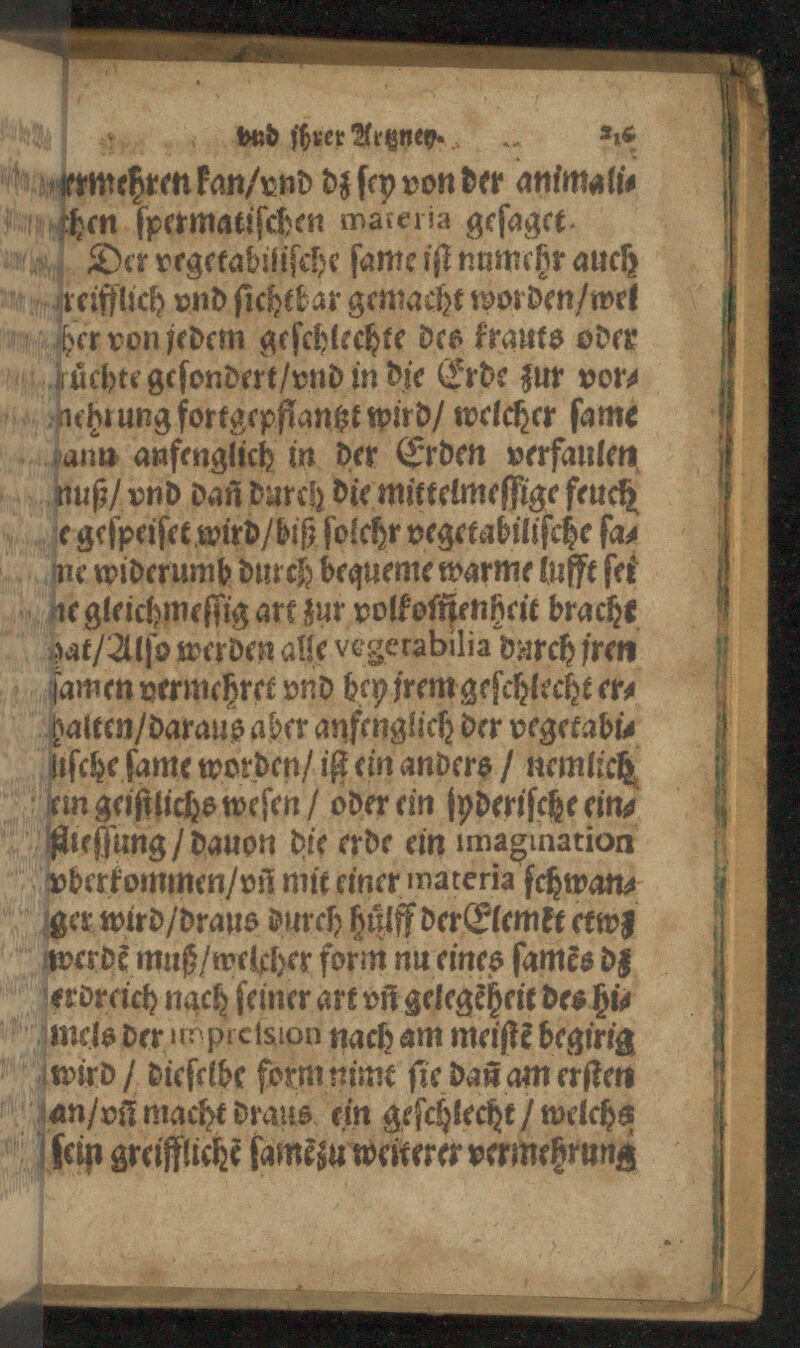 vnd jhrer Artzney. 216
vermehren kan/vnd dz ſey von der animali⸗
chen ſpermatiſchen materia geſaget.
Der vegetabiliſche ſame iſt numehr auch
greifflich vnd ſichtbar gemacht worden/wel
cher von jedem geſchlechte des krauts oder
früchte geſondert/vnd in die Erde zur vor⸗
mehrung fortgepflantzt wird/ welcher ſame
dann anfenglich in der Erden verfaulen
muß/ vnd dañ durch die mittelmeſſige feuch
te geſpeiſet wird/biß ſolchr vegetabiliſche ſa⸗
me widerumb durch bequeme warme lufft ſei
ne gleichmeſſig art zur volkom̃enheit bracht
hat/Alſo werden alle vegetabilia durch jren
ſamen vermehret vnd bey jrem geſchlecht er⸗
halten/daraus aber anfenglich der vegetabi⸗
liſche ſame worden/ iſt ein anders / nemlich
ein geiſtlichs weſen / oder ein ſyderiſche ein⸗
flieſſung / dauon die erde ein imagination
vberkommen/vñ mit einer materia ſchwan⸗
ger wird/draus durch hülff der Elemẽt etwz
werdẽ muß/welcher form nu eines ſamẽs dz
erdreich nach ſeiner art vñ gelegẽheit des hi⸗
mels der impreſsion nach am meiſtẽ begirig
wird / dieſelbe form nimt ſie dañ am erſten
an/vñ macht draus ein geſchlecht / welchs
ſein greifflichẽ ſamẽ zu weiterer vermehrung